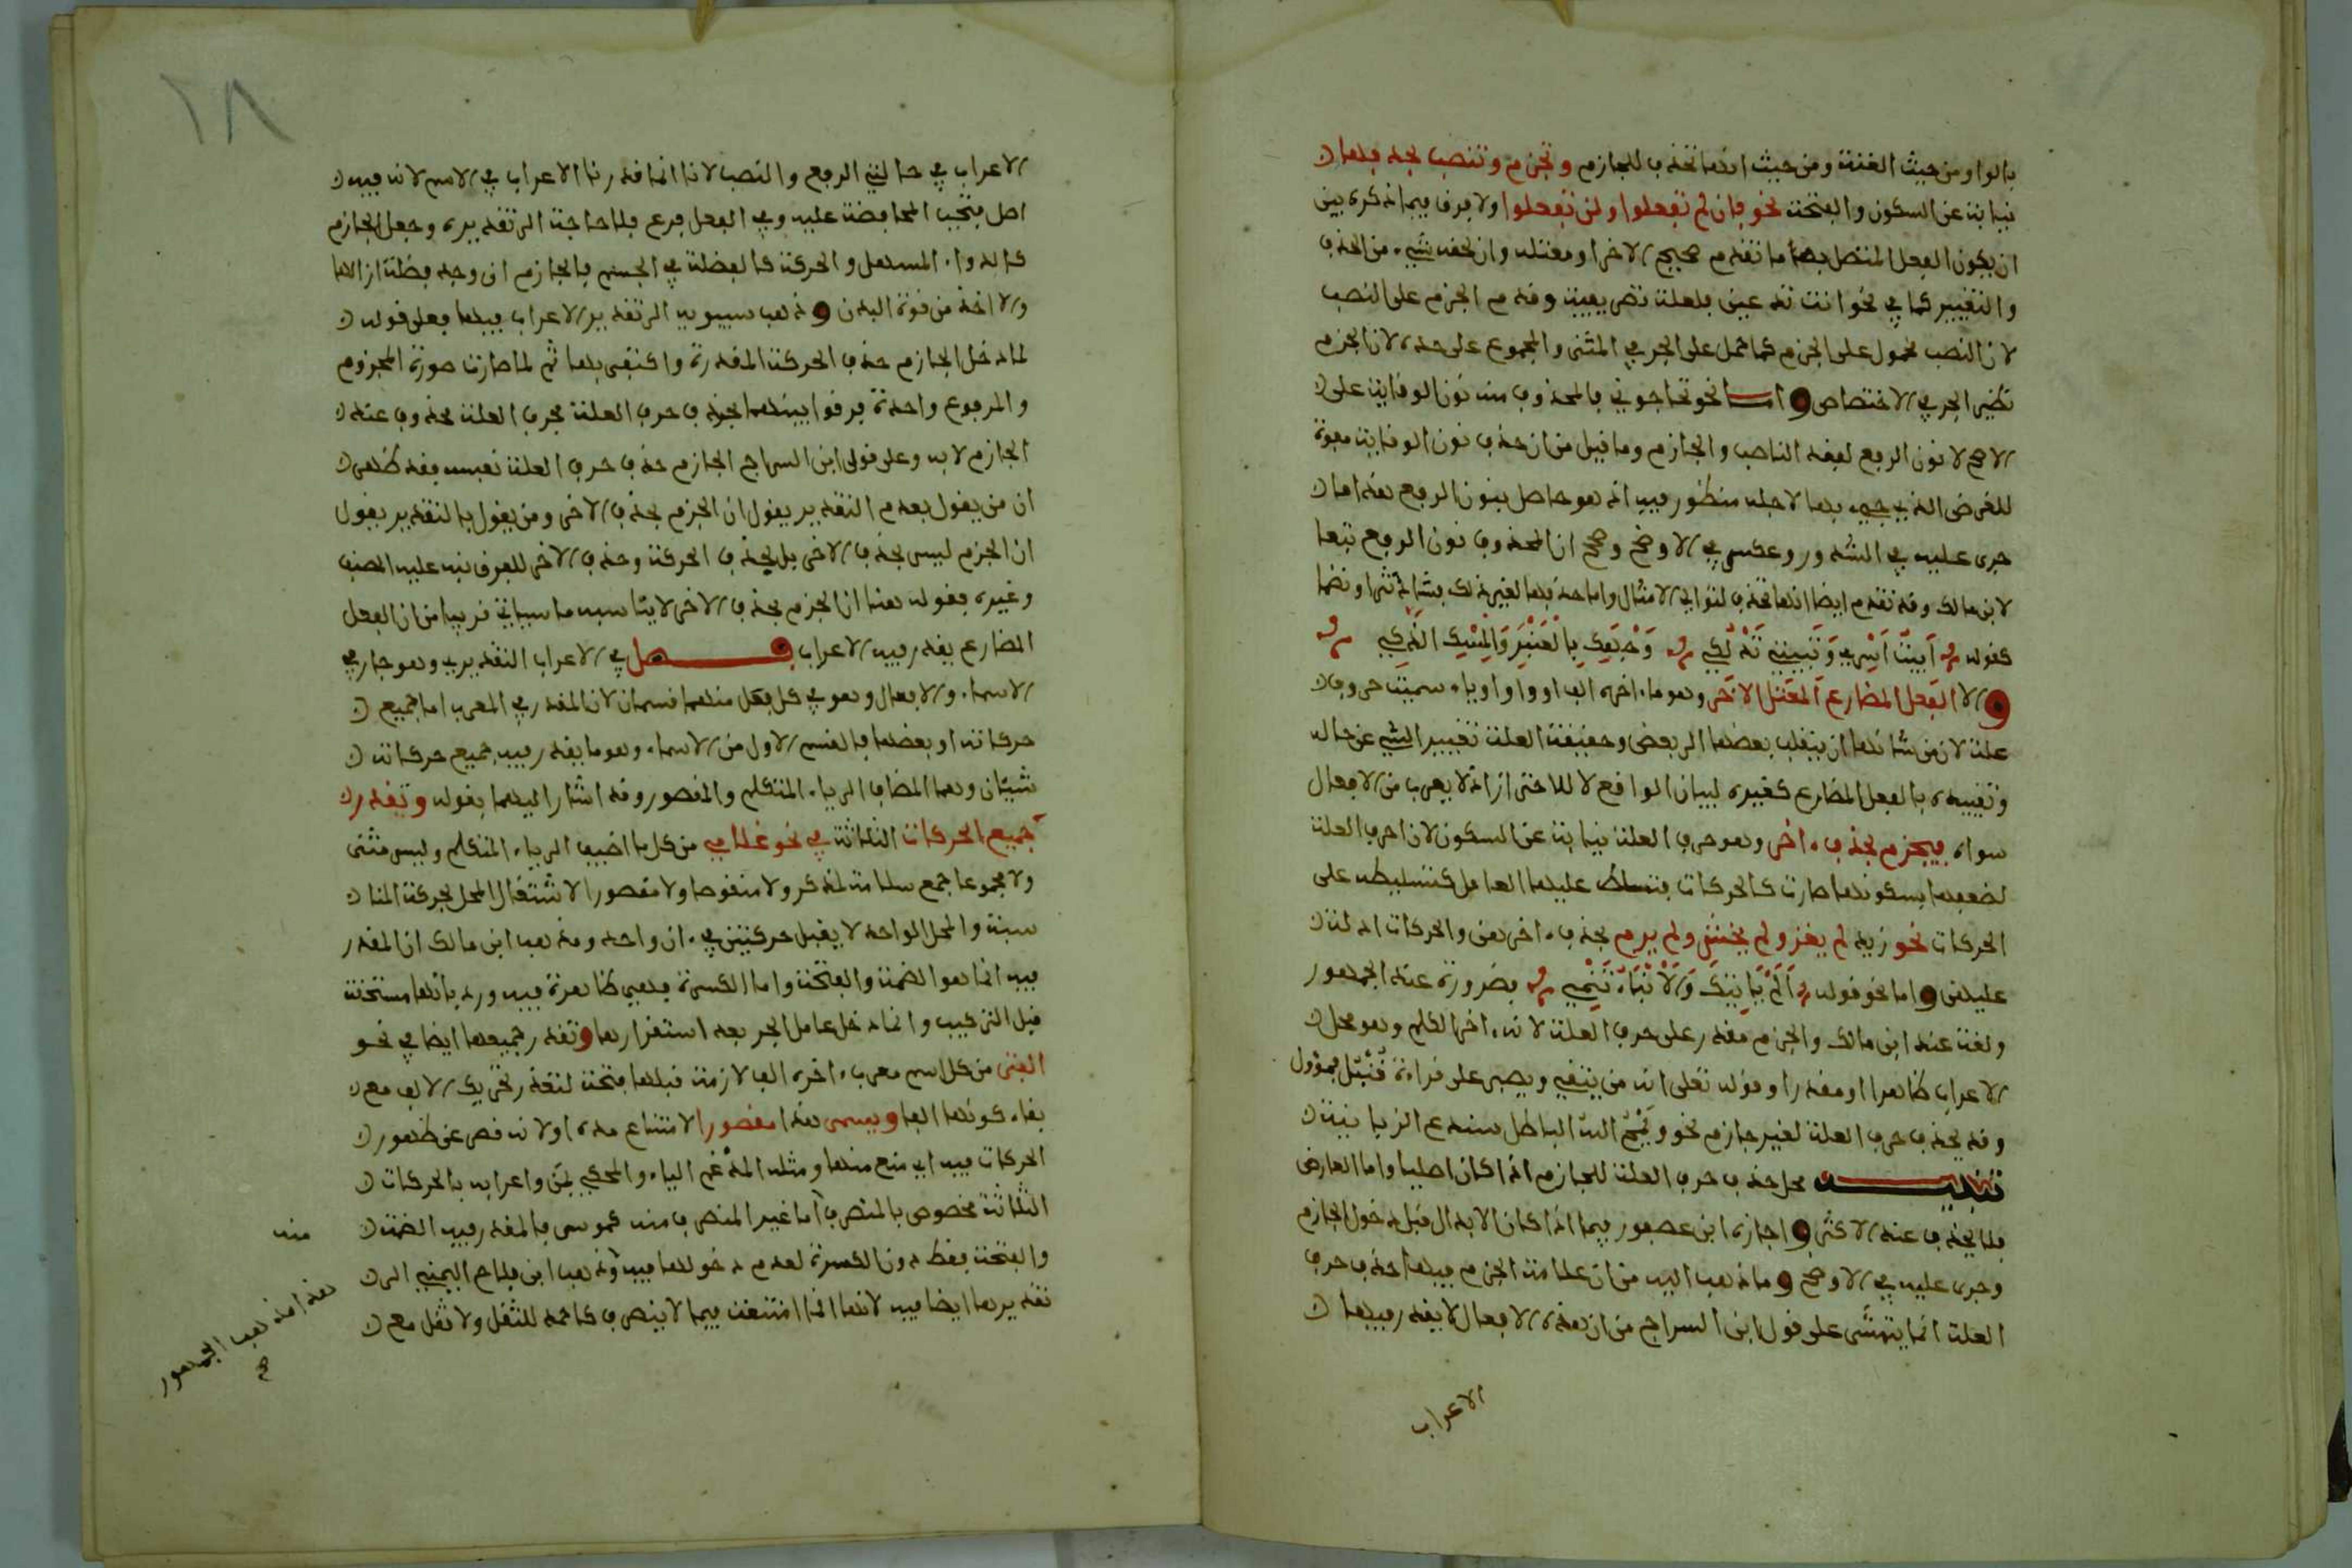 بالواو من حيث الغنة ومن حيث انها تحذف للجازم وتجزم وتنصب بحذفها
نيابة عن السكون والفتحة نحو فان لم تفعلوا ولن تفعلوا ولا فرق فيما ذكره بين
ان يكون الفعل المتصل بها ما تقدم صحيح الاخر او معتله وان لحقه شيء من الحذف
والتغيير كما في نحو انت تدعين فلعلة تصريفية وقدم الجزم على النصب
لان النصب محمول على الجزم كما حمل على الجر في المثنى والمجموع على حده لان الجزم
نظير الجر في الاختصاص واما نحو تحاجوني فالمحذوف منه نون الوقاية على
الاصح لا نون الرفع لفقد الناصب والجازم وما قيل من ان حذف نون الوقاية مفوت
للغرض الذي جيء بها لاجله منظور فيه اذ هو حاصل بنون الرفع هذا ما
جرى عليه في الشذور وعكس في الاوضح وصحح ان المحذوف نون الرفع تبعا
لابن مالك وقد تقدم ايضا انها تحذف لتوالي الامثال واما حذفها لغير ذلك فشاذ نثرا ونظما
كقوله ابيت اسري وتبيتي تدلكي وجهك بالعنبر والمسك الذكي
والا الفعل المضارع المعتل الاخر وهو ما اخره الف او واو او ياء سميت حروف
علة لان من شانها ان ينقلب بعضها الى بعض وحقيقة العلة تغيير الشيء عن حاله
وتقييده بالفعل المضارع كغيره لبيان الواقع لا للاحتراز اذ لا يعرب من الافعال
سواه فيجزم بحذف اخره وهو حرف العلة نيابة عن السكون لان احرف العلة
لضعفها بسكونها صارت كالحركات فتسلط عليها العامل كتسليطه على
الحركات نحو زيد لم يغز ولم يخش ولم يرم بحذف اخرهن والحركات ادلة
عليهن واما نحو قوله الم ياتيك والانباء تنمي فضرورة عند الجمهور
ولغة عند ابن مالك والجزم مقدر على حرف العلة لانه اخر الكلم وهو محل
الاعراب ظاهرا او مقدرا وقوله تعلى انه من يتقي ويصبر على قراءة قنبل فمؤول
وقد يحذف حرف العلة لغير جازم نحو ويمح الله الباطل سندع الزبانية
تنبيه محل حذف حرف العلة للجازم اذا كان اصليا واما العارض
فلا يحذف عند الاكثر واجازه ابن عصفور فيما اذا كان الابدال قبل دخول الجازم
وجرى عليه في الاوضح وما ذهب اليه من ان علامة الجزم فيها حذف حرف
العلة انما يتمشى على قول ابن السراج من ان هذه الافعال لا يقدر فيها
الاعراب
١٨
الاعراب في حالتي الرفع والنصب لانا انما قدرنا الاعراب في الاسم لانه فيه
اصل فتجب المحافظة عليه وفي الفعل فرع فلا حاجة الى تقديره وجعل الجازم
كالدواء المسهل والحركة كالفضلة في الجسم فالجازم ان وجد فضلة ازالها
والا اخذ من قوة البدن وذهب سيبويه الى تقدير الاعراب فيها فعلى قوله
لما دخل الجازم حذف الحركة المقدرة واكتفى بها ثم لما صارت صورة المجزوم
والمرفوع واحدة فرقوا بينهما بحذف حرف العلة فحرف العلة محذوف عند
الجازم لا به وعلى قول ابن السراج الجازم حذف حرف العلة نفسه فقد ظهر
ان من يقول بعدم التقدير يقول ان الجزم بحذف الاخر ومن يقول بالتقدير يقول
ان الجزم ليس بحذف الاخر بل بحذف الحركة وحذف الاخر للفرق نبه عليه المصنف
وغيره فقوله هنا ان الجزم بحذف الاخر لا يناسبه ما سياتي قريبا من ان الفعل
المضارع يقدر فيه الاعراب فصل في الاعراب التقديري وهو جار في
الاسماء والافعال وهو في كل فعل منهما قسمان لان المقدر في المعرب اما جميع
حركاته او بعضها فالقسم الاول من الاسماء وهو ما يقدر فيه جميع حركاته
شيئان وهما المضاف الى ياء المتكلم والمقصور وقد اشار اليهما بقوله وتقدر
جميع الحركات الثلاثة في نحو غلامي من كل ما اضيف الى ياء المتكلم وليس مثنى
ولا مجموعا جمع سلامة لمذكر ولا منقوصا ولا مقصورا لاشتغال المحل بحركة المنا
سبة والمحل الواحد لا يقبل حركتين في ان واحد ومذهب ابن مالك ان المقدر
فيه انما هو الضمة والفتحة واما الكسرة فهي ظاهرة فيه ورد بانها مستحقة
قبل التركيب وانما دخل عامل الجر بعد استقرارها وتقدر جميعها ايضا في نحو
الفتى من كل اسم معرب اخره الف لازمة قبلها فتحة لتعذر تحريك الالف مع
بقاء كونها الفا ويسمى هذا مقصورا لامتناع مده او لانه قصر عن ظهور
الحركات فيه اي منع منها ومثله المدغم الياء والمحكي بمن واعرابه بالحركات
الثلاثة مخصوص بالمتصرف اما غير المنصرف منه كموسى فالمقدر فيه الضمة
والفتحة فقط دون الكسرة لعدم دخولها فيه وذهب ابن فلاح اليمني الى
تقديرها ايضا فيه لانها انما امتنعت فيما لا ينصرف كاحمد للثقل ولا ثقل مع
منه
هذا مذهب الجمهور
صح